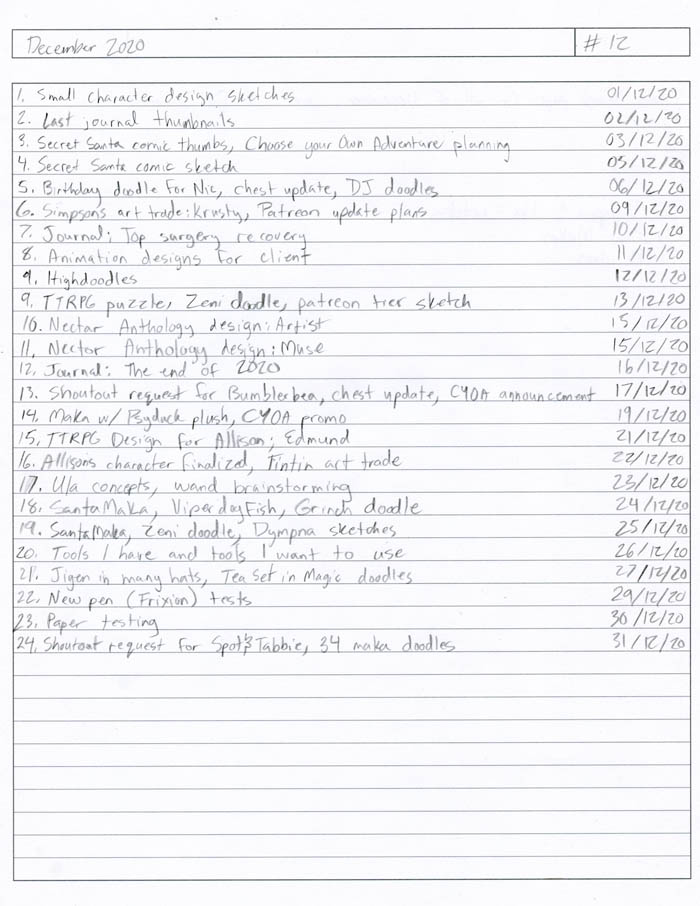 December 2020 #12
1. Small character design sketches 01/12/20
2. Last journal thumbnails 02/12/20
3. Secret Santa comic thumbs, Choose your Own Adventure planning 03/12/20
4. Secret Santa comic sketch 05/12/20
5. Birthday doodle For Nic, chest update, DJ doodles 06/12/20
6. Simpsons art trade: Krusty, Patreon update plans 09/12/20
7. Journal: Top surgery recovery 10/12/20
8. Animation designs for client 11/12/20
9. Highdoodles 12/12/20
9. TTRPG puzzle, Zeni doodle, patreon tier sketch 13/12/20
10. Nectar Anthology design: Artist 15/12/20
11. Nector Anthology design: Muse 15/12/20
12. Journal: The end of 2020 16/12/20
13. Shoutout request for Bumblerbea, chest update, CYOA announcement 17/12/20
14. Maka w/ Psyduck plush, CYOA promo 19/12/20
15. TTRPG Design for Allison; Edmund 21/12/20
16. Allisons character finalized, Tintin art trade 22/12/20
17. Ula concepts, wand brainstorming 23/12/20
18. SantaMaka, ViperdayFish, Grinch doodle 24/12/20
19. SantaMaka, Zeni doodle, Dympna sketches 25/12/20
20. Tools I have and tools I want to use 26/12/20
21. Jigen in many hats, Tea Set in Magic doodles 27/12/20
22. New pen (Frixion) tests 29/12/20
23. Paper testing 30/12/20
24. Shoutout request for Spot & Tabbie, 34 maka doodles 31/12/20